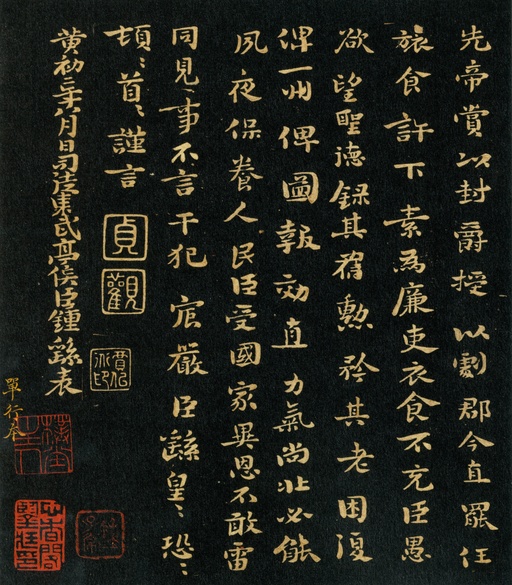 先帝賞以封爵授以劇郡今直罷任
旅食許下素為廉吏衣食不充臣愚
欲望聖德録其舊勲矜其老困復
俾一州俾圖報効直力氣尚壯必能
夙夜保養人民臣受國家異恩不敢雷
同見事不言干犯宸嚴臣繇皇〻恐〻
頓〻首〻謹言
貞觀
黃初二年八月日司徒東武亭侯臣鍾繇表
單行